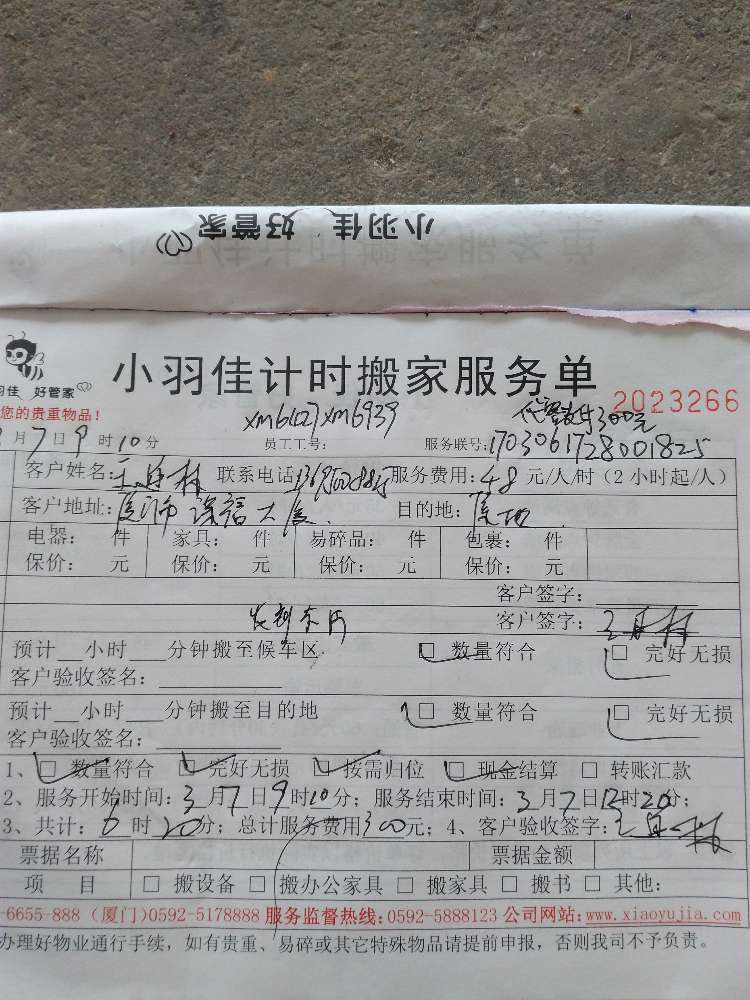 小羽佳 好管家
羽佳 好管家
小羽佳计时搬家服务单
2023266
您的贵重物品！
xm6427 xm6939
月7日9时10分 员工工号: 服务联号:1703061728001825
客户姓名: 联系电话 服务费用:48元/人/时（2小时起/人）
客户地址: 大厦 目的地:
电器: 件 家具: 件 易碎品: 件 包裹: 件
保价: 元 保价: 元 保价: 元 保价: 元
客户签字:
客户签字:
预计__小时___分钟搬至候车区 □ 数量符合 □ 完好无损
客户验收签名:
预计__小时___分钟搬至目的地 □ 数量符合 □ 完好无损
客户验收签名:
1、□ 数量符合 □ 完好无损 □ 按需归位 □ 现金结算 □ 转账汇款
2、服务开始时间:3月7日9时10分；服务结束时间:3月7日12时20分；
3、共计:6时20分；总计服务费用300元；4、客户验收签字:
票据名称 票据金额
项 目 □ 搬设备 □ 搬办公家具 □ 搬家具 □ 搬书 □ 其他:
-6655-888（厦门)0592-5178888 服务监督热线:0592-5888123 公司网站:www.xiaoyujia.com
办理好物业通行手续，如有贵重、易碎或其它特殊物品请提前申报，否则我司不予负责。